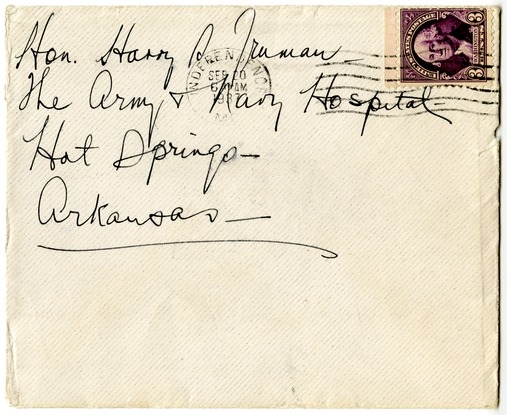 Hon. Harry S. Truman
The Army & Navy Hospital
Hot Springs
Arkansas
INDEPENDENCE
SEP 20
AM
193
MO
UNITED STATES POSTAGE
3 3